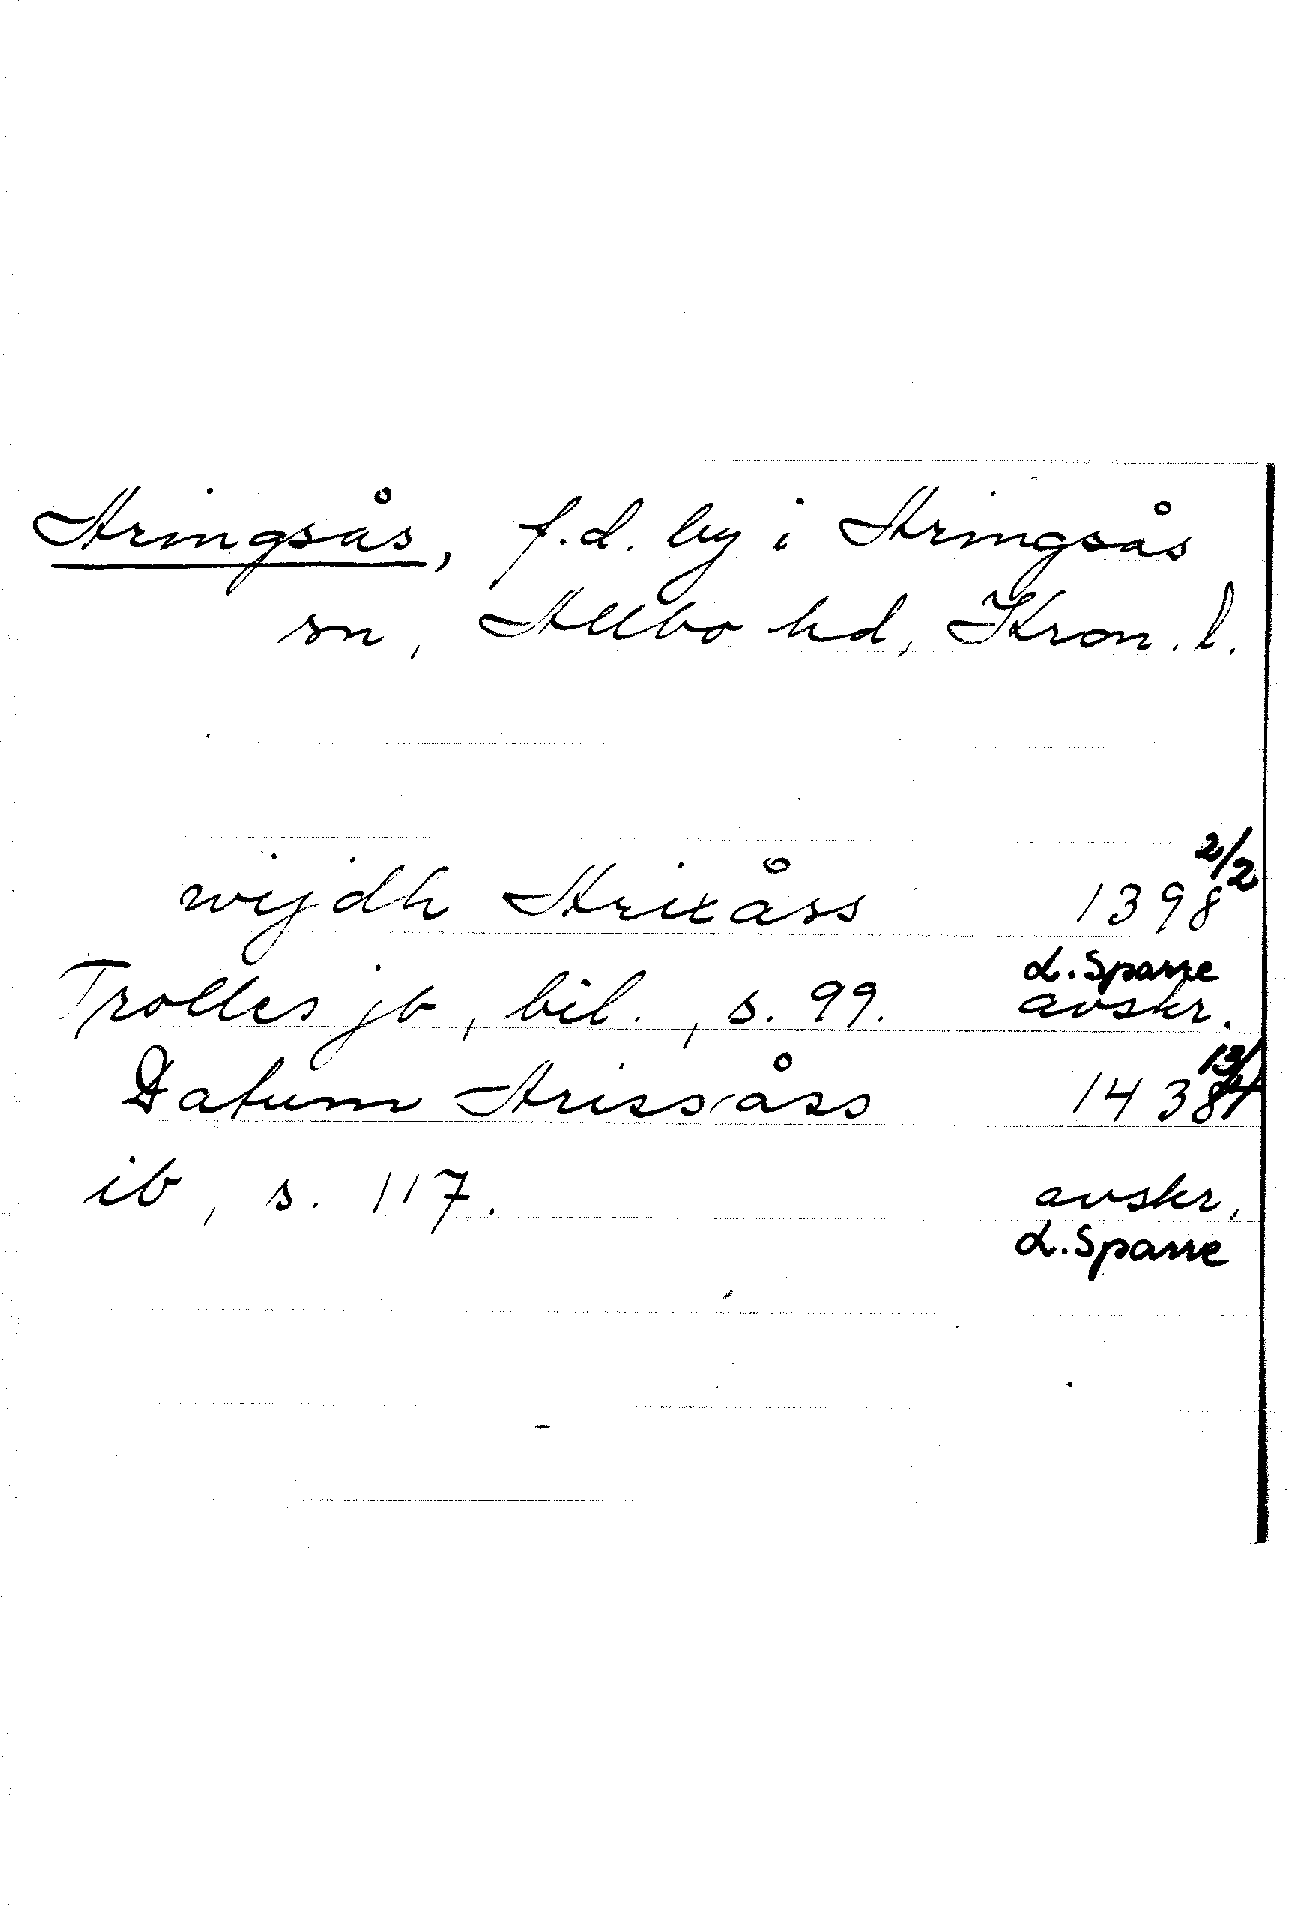 Aringsås, f.d. by i Aringsås
sn, Allbo hd, Kron. l.
wijdh Arixåss 1398 2/2
L. Sparre
Trolles jb, bil., s. 99. avskr.
Datum Arissåss 1438 13/4
ib, s. 117. avskr.
L. Sparre